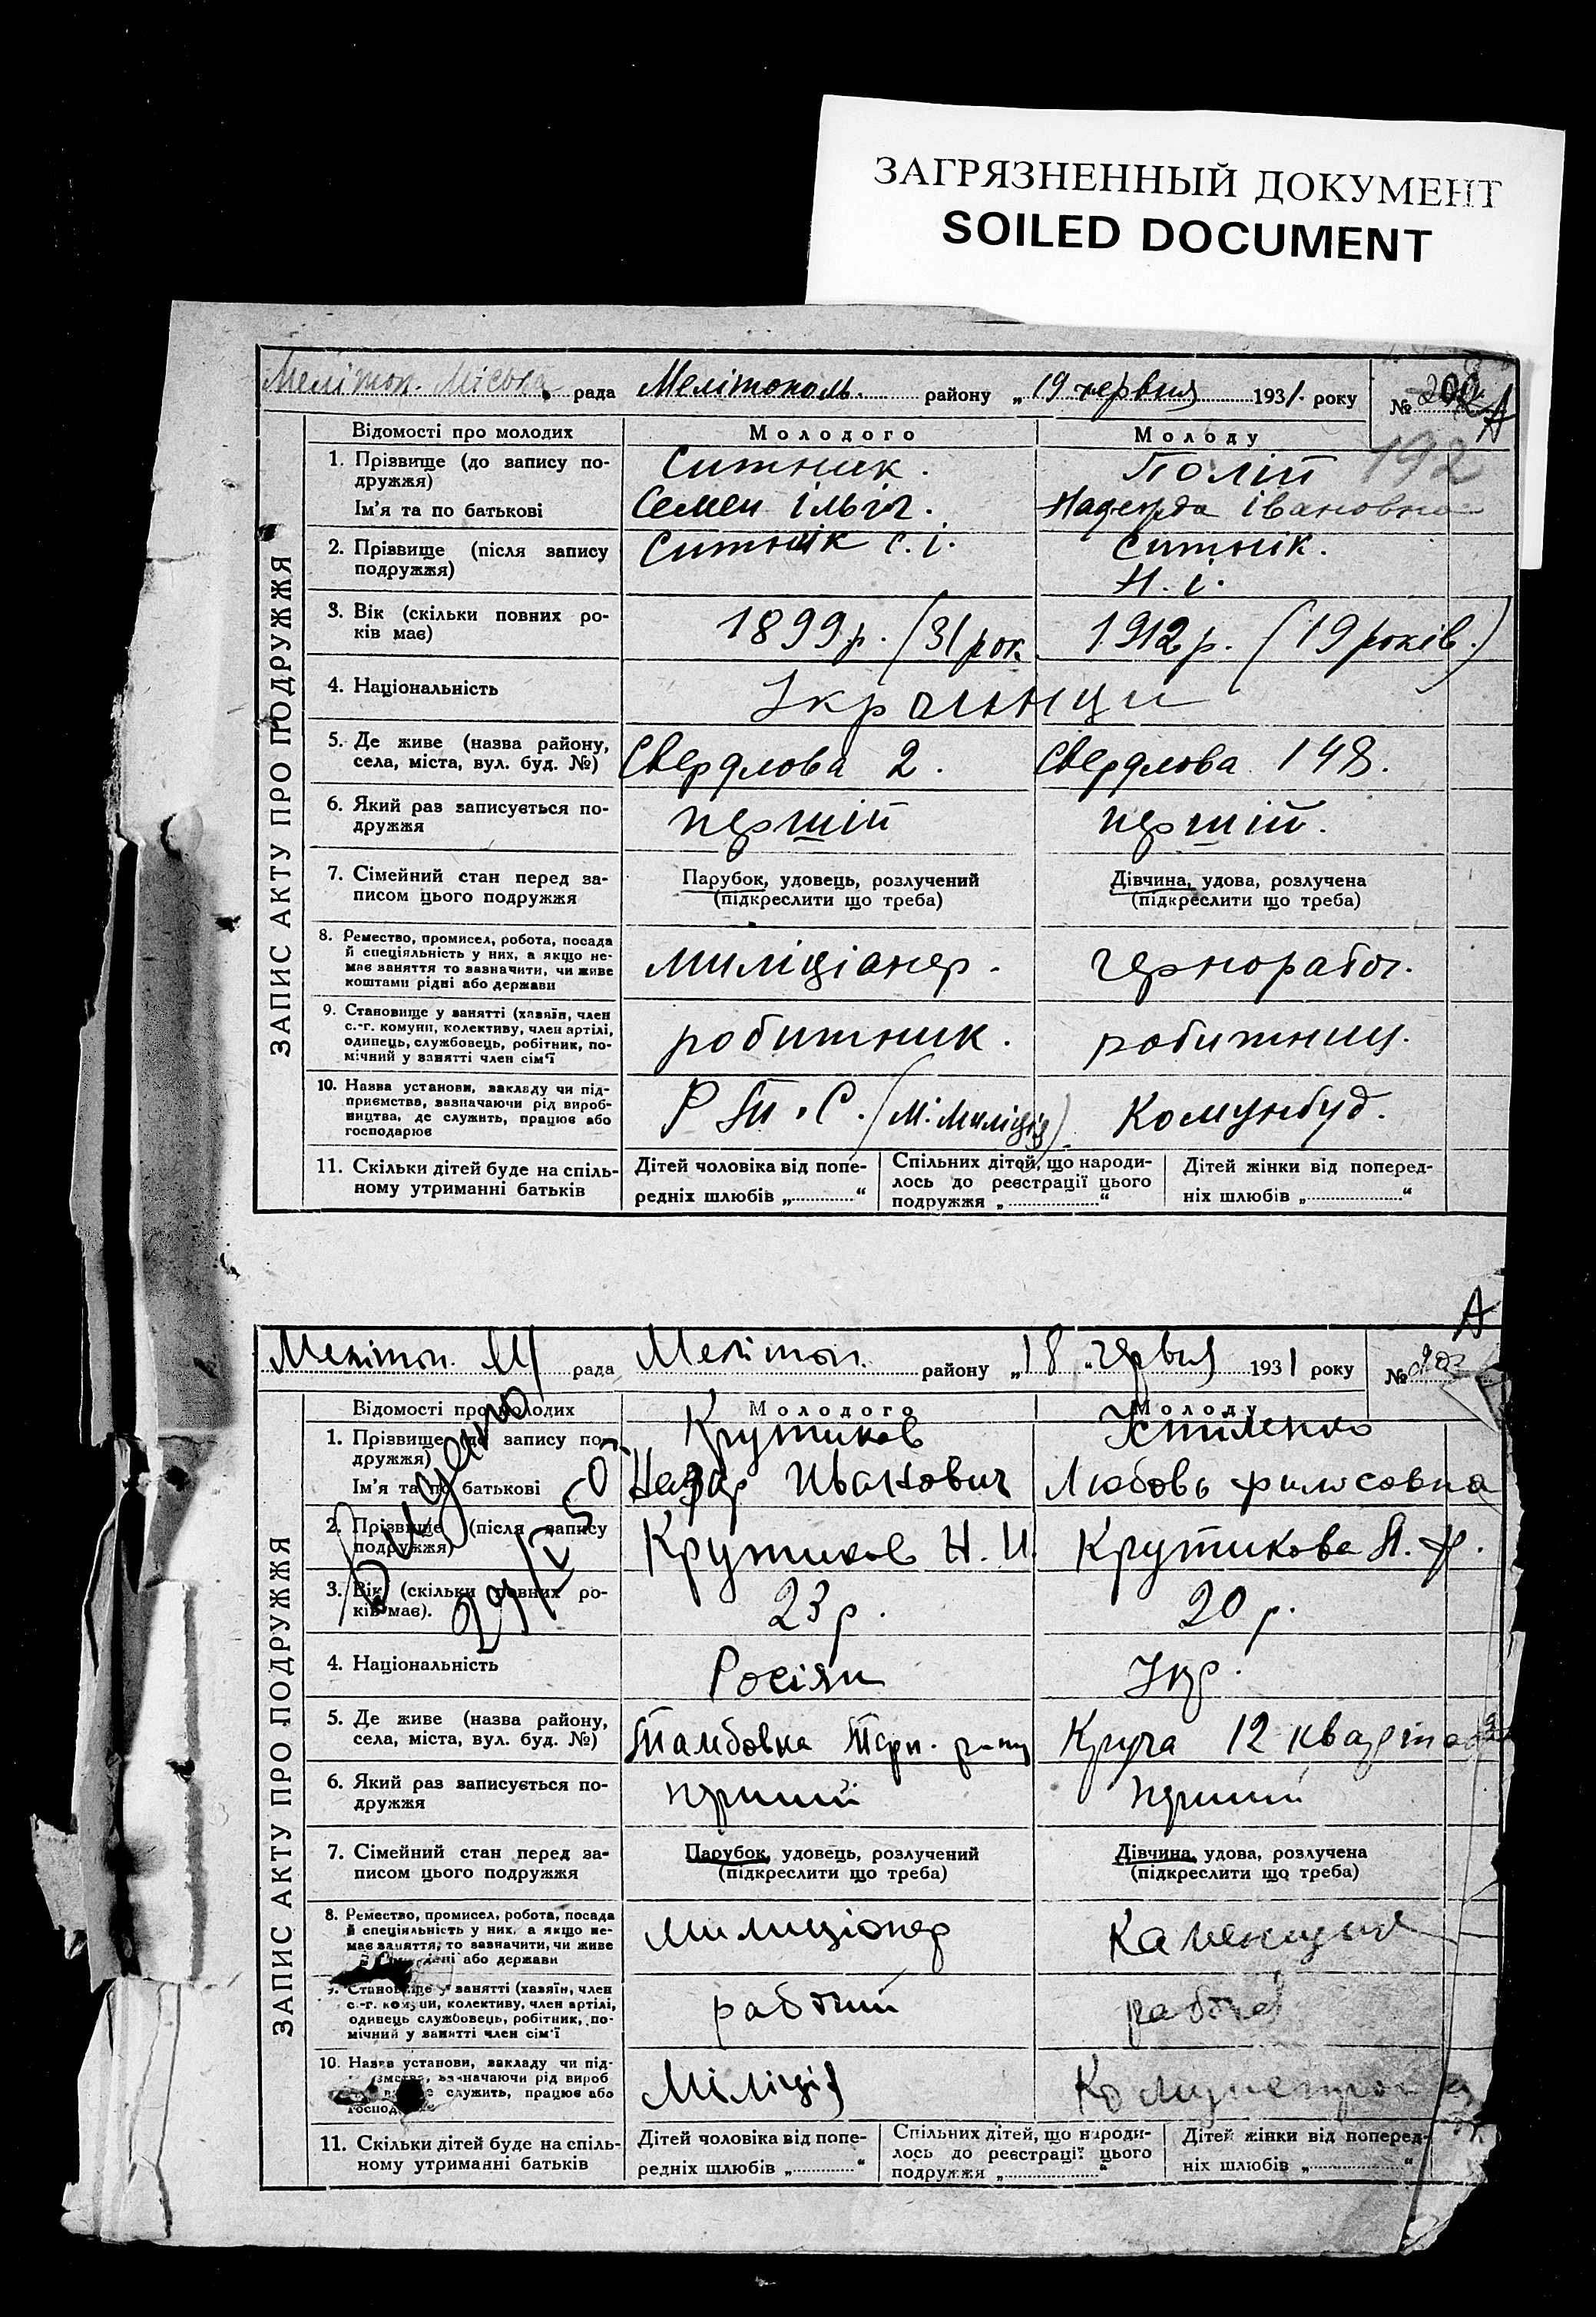 ЗАГРЯЗНЕННЫЙ ДОКУМЕНТ
SOILED DOCUMENT
Мелітоп. Міська рада Мелітополь. району „19 червня 1931. року №
А
192
ЗАПИС АКТУ ПРО ПОДРУЖЖЯ
Відомості про молодих Молодого Молоду
1. Прізвище (до запису подружжя) Ситник. Полій
Ім'я та по батькові Семен Ільіч. Надежда Івановна
2. Прізвище (після запису подружжя) Ситник С. І. Ситнік. Н. І.
3. Вік (скільки повних років має) 1899 р. (31 рок. 1912 р. (19 років.)
4. Національність Українци
5. Де живе (назва району, села, міста, вул. буд. №) Свердлова 2. Свердлова 148.
6. Який раз записується подружжя першій першій.
7. Сімейний стан перед записом цього подружжя Парубок, удовець, розлучений (підкреслити що треба) Дівчина, удова, розлучена (підкреслити що треба)
8. Ремество, промисел, робота, посада й спеціяльність у них, а якщо немає заняття то зазначити, чи живе коштами рідні або держави миліціанер. чернорабоч.
9. Становище у занятті (хазяїн, член с.-г. комуни, колективу, член артілі, одинець, службовець, робітник, помічний у занятті член сім'ї робитник. робитниц.
10. Назва установи, закладу чи підприємства, зазначаючи рід виробництва, де служить, працює або господарює (М. Миліція) Комунбуд.
11. Скільки дітей буде на спільному утриманні батьків Дітей чоловіка від попередніх шлюбів „ “ Спільних дітей, що народилось до реєстрації цього подружжя „ “ Дітей жінки від попередніх шлюбів „ “
А
Мелітоп. М/ рада Мелітоп. району „18 „червня 1931 року №
ЗАПИС АКТУ ПРО ПОДРУЖЖЯ
Відомості про молодих Молодого Молоду
1. Прізвище (до запису подружжя) Крутиков Устименко
Ім'я та по батькові Назар Иванович Любовь
2. Прізвище (після запису подружжя) Крутиков Н. И. Крутикова Л. Ф.
3. Вік (скільки повних років має). 23 р. 20 р.
4. Національність Росіян Укр.
5. Де живе (назва району, села, міста, вул. буд. №) Тамбовка Круча 12 квартал
6. Який раз записується подружжя перший перший
7. Сімейний стан перед записом цього подружжя Парубок, удовець, розлучений (підкреслити що треба) Дівчина, удова, розлучена (підкреслити що треба)
8. Ремество, промисел, робота, посада й спеціяльність у них, а якщо немає заняття, то зазначити, чи живе або держави милиціонер Каменщик
9. Становище у занятті (хазяїн, член с.-г. комуни, колективу, член артілі, одинець службовець, робітник, помічний у занятті член сім'ї рабочий
10. Назва установи, закладу чи зазначаючи рід вироб служить, працює або Міліція
11. Скільки дітей буде на спільному утриманні батьків Дітей чоловіка від попередніх шлюбів „ “ Спільних дітей, що народилось до реєстрації цього подружжя „ “ Дітей жінки від попередніх шлюбів „ “